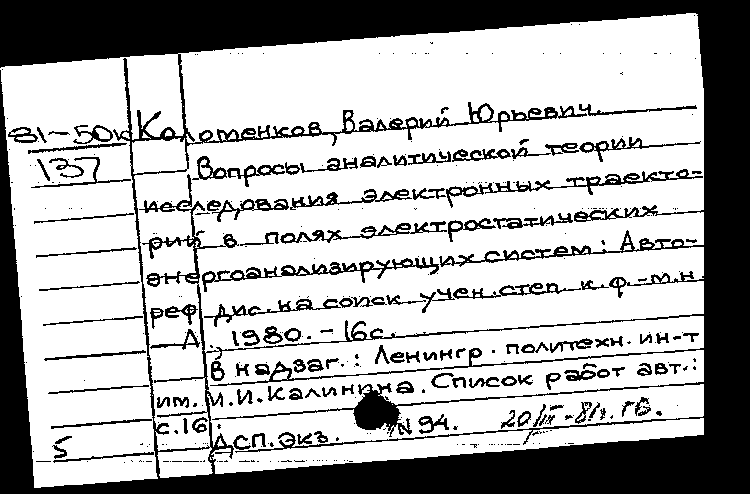 81-50к Коломенков, Валерий Юрьевич.
137 Вопросы аналитической теории
исследования электронных траекто-
рий в полях электростатических
энергоанализирующих систем: Авто-
реф. дис. на соиск. учен. степ. к. ф.-м. н.
Л., 1980. - 16 с.
В надзаг.: Ленингр. политехн. ин-т
им. М.И. Калинина. Список работ авт.:
с. 16.
5 ДСП. Экз. N 94. 20/III-81г. ГВ.